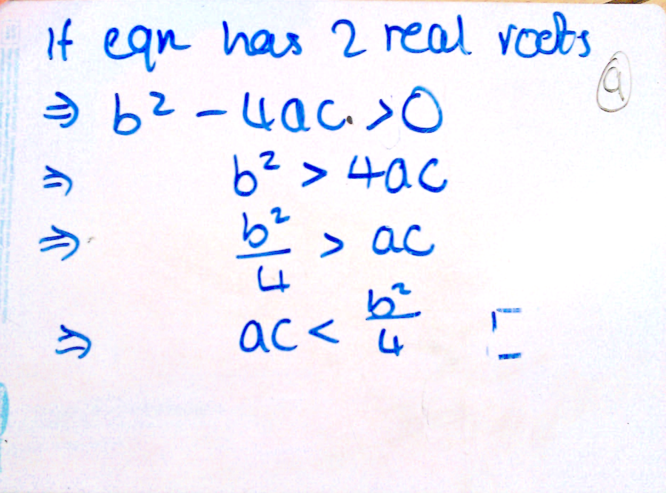 If eqn has 2 real roots
a
⇒ b² - 4ac > 0
⇒ b² > 4ac
⇒ b²/4 > ac
⇒ ac < b²/4